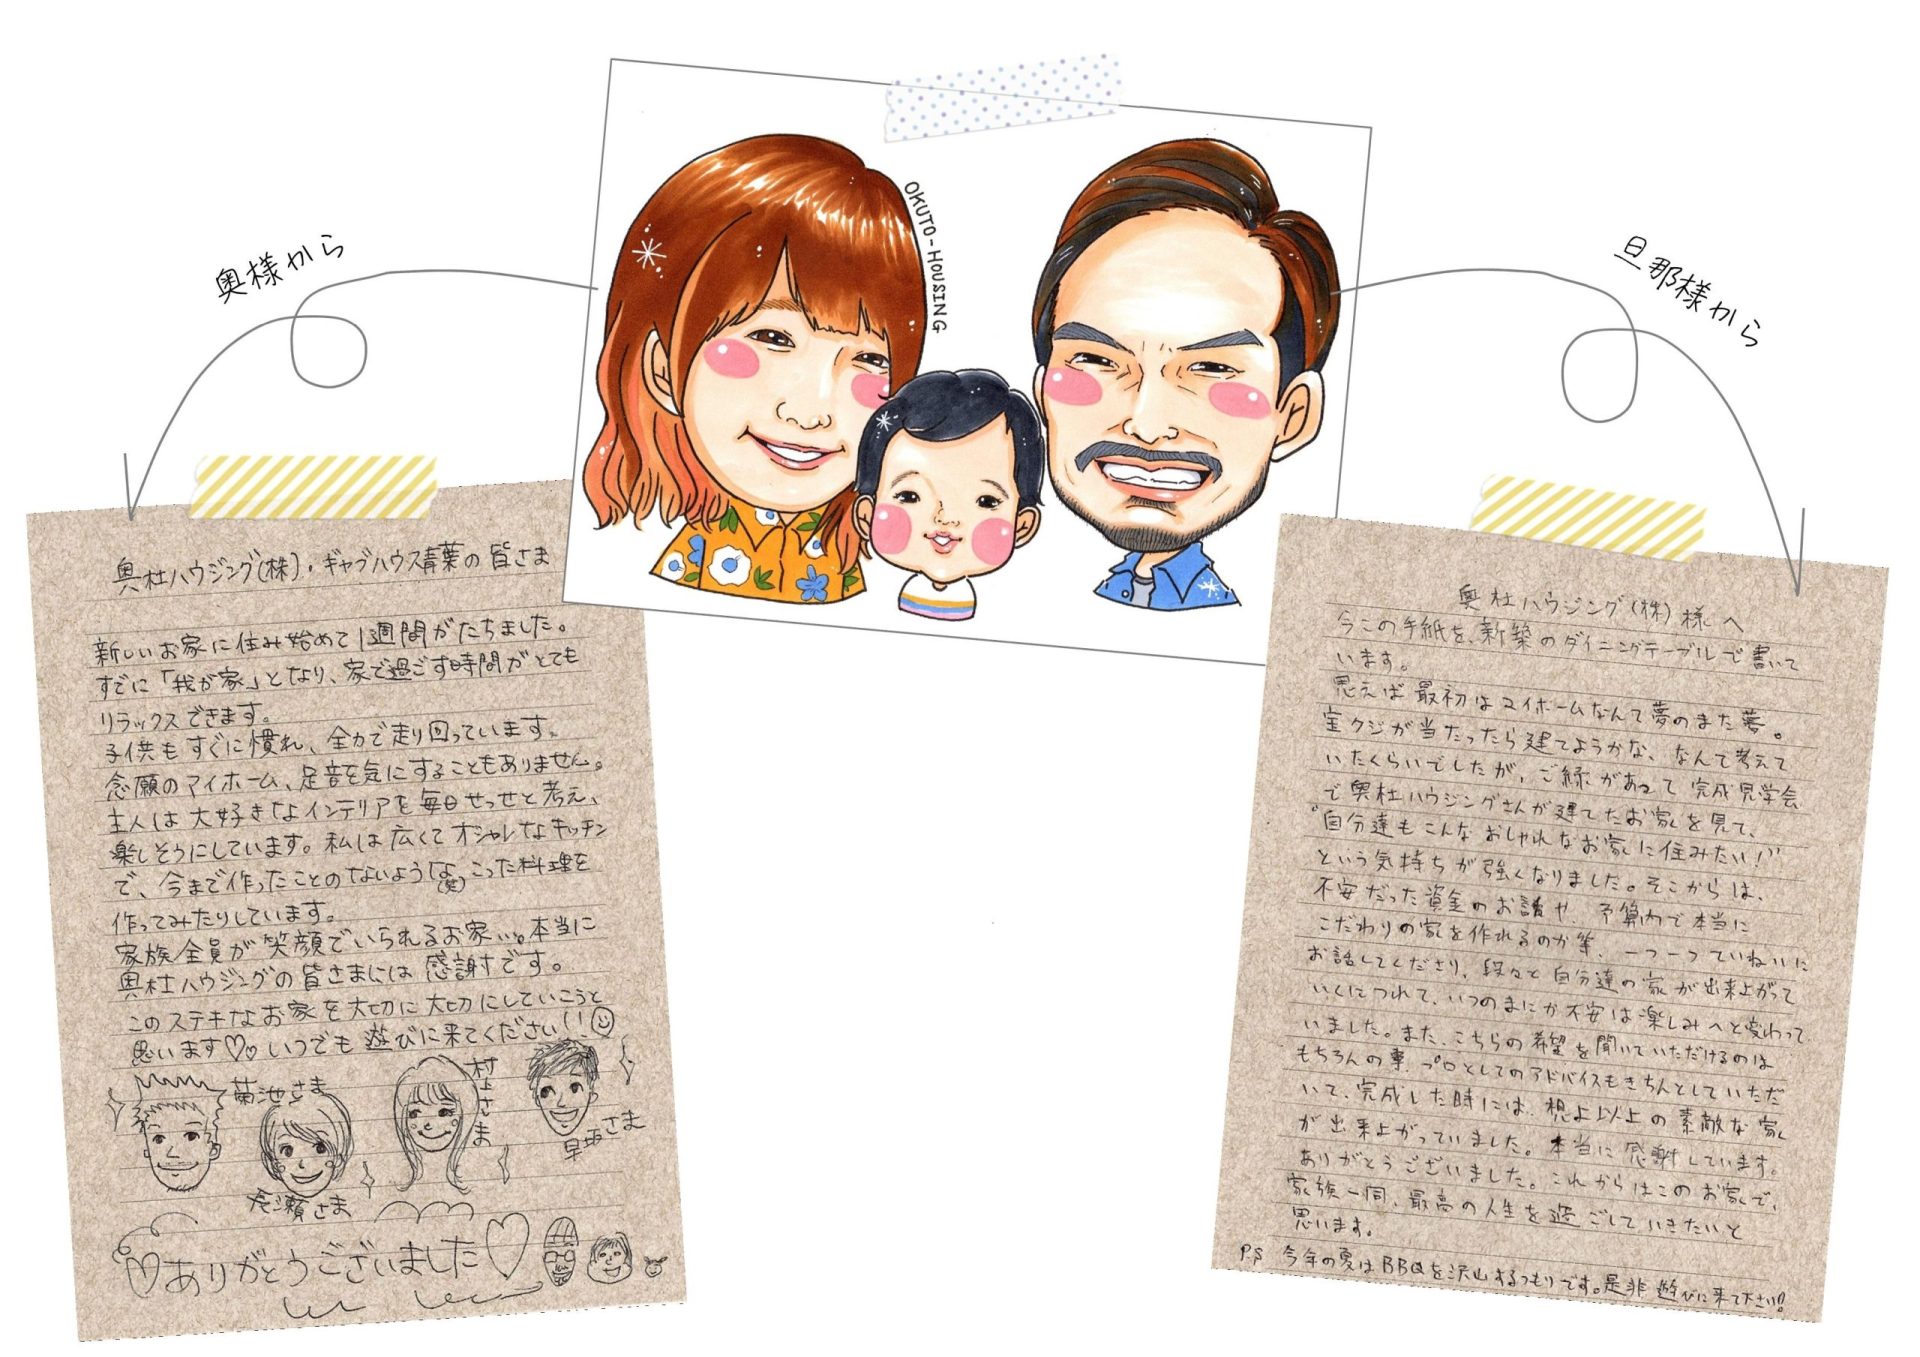 OKUTO-HOUSING
奥様から
旦那様から
奥杜ハウジング(株)・ギャブハウス青葉の皆さま
新しいお家に住み始めて1週間がたちました。
すでに「我が家」となり、家で過ごす時間がとても
リラックスできます。
子供もすぐに慣れ、全力で走り回っています。
念願のマイホーム、足音を気にすることもありません。
主人は大好きなインテリアを毎日せっせと考え、
楽しそうにしています。私は広くてオシャレなキッチン
で、今まで作ったことのないような(笑)こった料理を
作ってみたりしています。
家族全員が笑顔でいられるお家…。本当に
奥杜ハウジングの皆さまには感謝です。
このステキなお家を大切に大切にしていこうと
思います♡♡いつでも遊びに来てください!!
菊池さま
村上さま
早坂さま
長瀬さま
♡ありがとうございました♡
奥杜ハウジング(株)様へ
今この手紙を、新築のダイニングテーブルで書いて
います。
思えば最初はマイホームなんて夢のまた夢。
宝クジが当たったら建てようかな、なんて考えて
いたくらいでしたが、ご縁があって完成見学会
で奥杜ハウジングさんが建てたお家を見て、
"自分達もこんなおしゃれなお家に住みたい!"
という気持ちが強くなりました。そこからは、
不安だった資金のお話や、予算内で本当に
こだわりの家を作れるのか等、一つ一つていねいに
お話してくださり、段々と自分達の家が出来上がって
いくにつれて、いつのまにか不安は楽しみへと変わって
いました。また、こちらの希望を聞いていただけるのは
もちろんの事、プロとしてのアドバイスもきちんとしていただ
いて、完成した時には、想像以上の素敵な家
が出来上がっていました。本当に感謝しています。
ありがとうございました。これからはこのお家で、
家族一同、最高の人生を過ごしていきたいと
思います。
P.S 今年の夏はBBQを沢山するつもりです。是非遊びに来て下さい!!